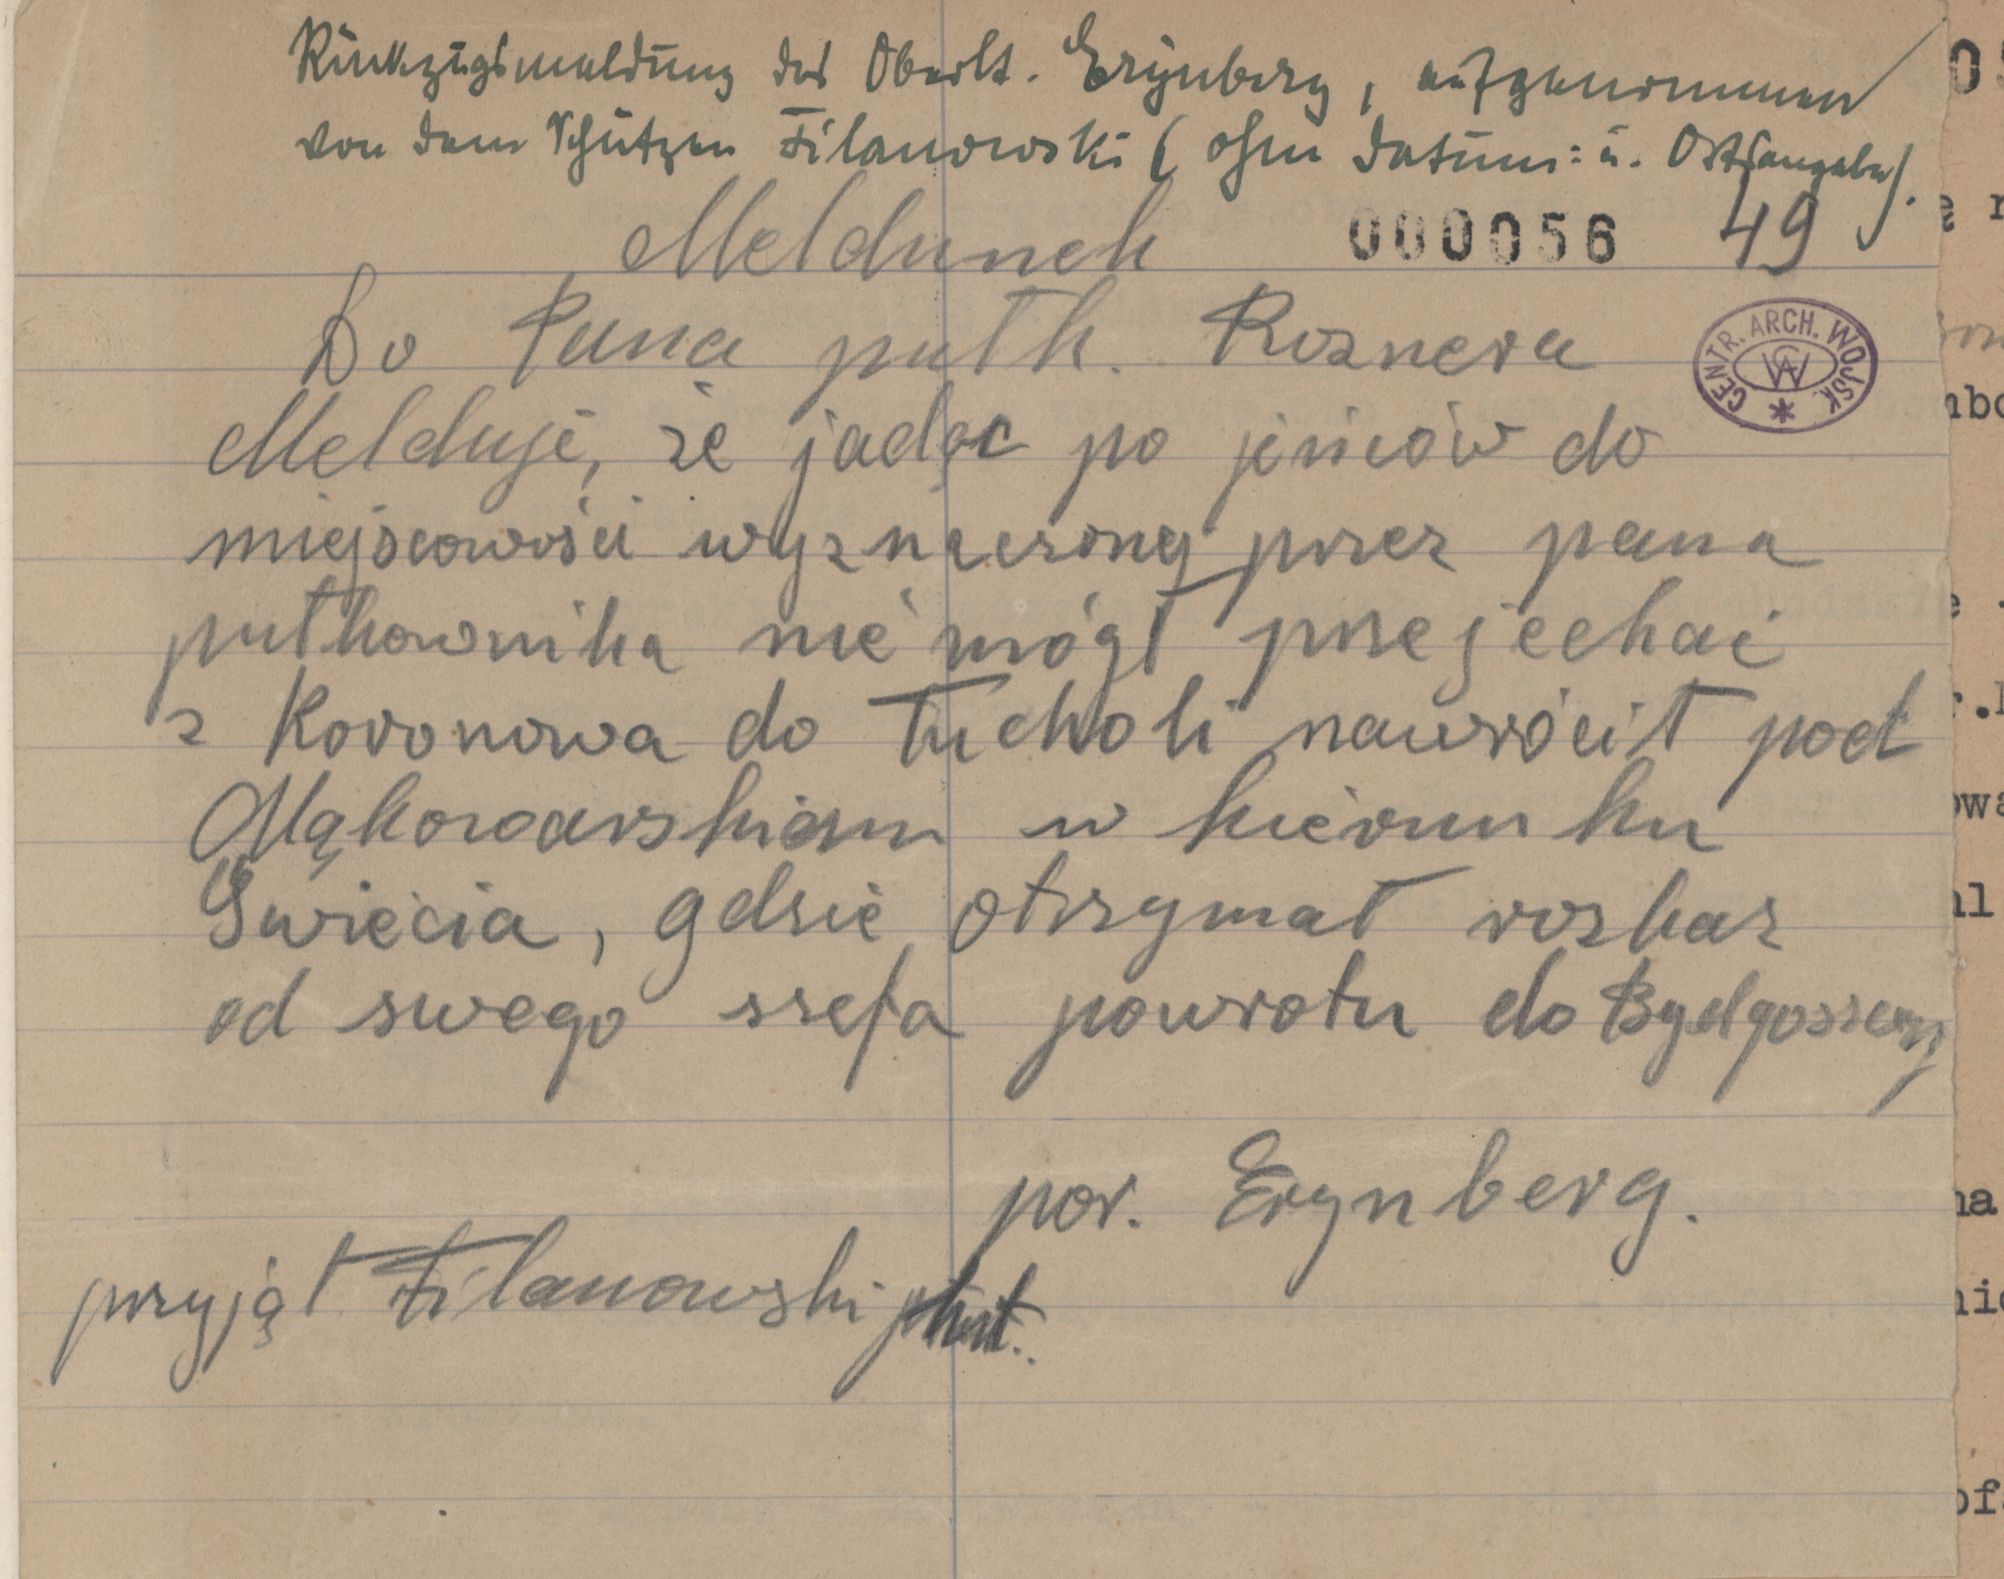 Rückzugsmeldung des Oberlt. Erynberg, aufgenommen
von dem Schützen Filanowski (ohne Datums= u. Ortsangabe).
Meldunek
000056 49
Do Pana pułk. Roznera
CENTR. ARCH. WOJSK. CAW
Melduję, że jadąc po jeńców do
miejscowości wyznaczonej przez pana
pułkownika nie mógł przejechać
z Koronowa do Tucholi nawrócił pod
Mąkowarskiem w kierunku
Świecia, gdzie otrzymał rozkaz
od swego szefa powrotu do Bydgoszczy
por. Erynberg.
przyjął Filanowski